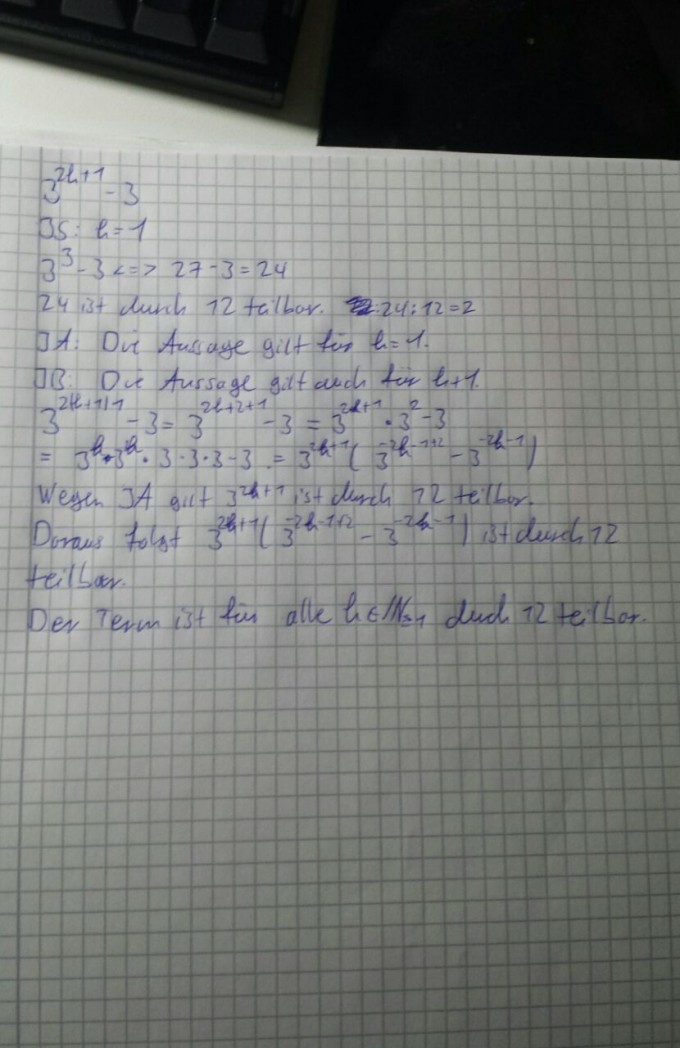 3^{2k+1} - 3
IS: k=1
3^3 - 3 <=> 27-3=24
24 ist durch 12 teilbar. 24:12=2
IA: Die Aussage gilt für k=1.
IB: Die Aussage gilt auch für k+1.
3^{2(k+1)+1} - 3 = 3^{2k+2+1} - 3 = 3^{2k+1} · 3^2 - 3
= 3^k · 3^k · 3 · 3 · 3 - 3 = 3^{2k+1} ( 3^{-2k-1+2} - 3^{-2k-1} )
Wegen IA gilt 3^{2k+1} ist durch 12 teilbar.
Daraus folgt 3^{2k+1} ( 3^{-2k-1+2} - 3^{-2k-1} ) ist durch 12
teilbar.
Der Term ist für alle k∈ℕ≥1 duch 12 teilbar.